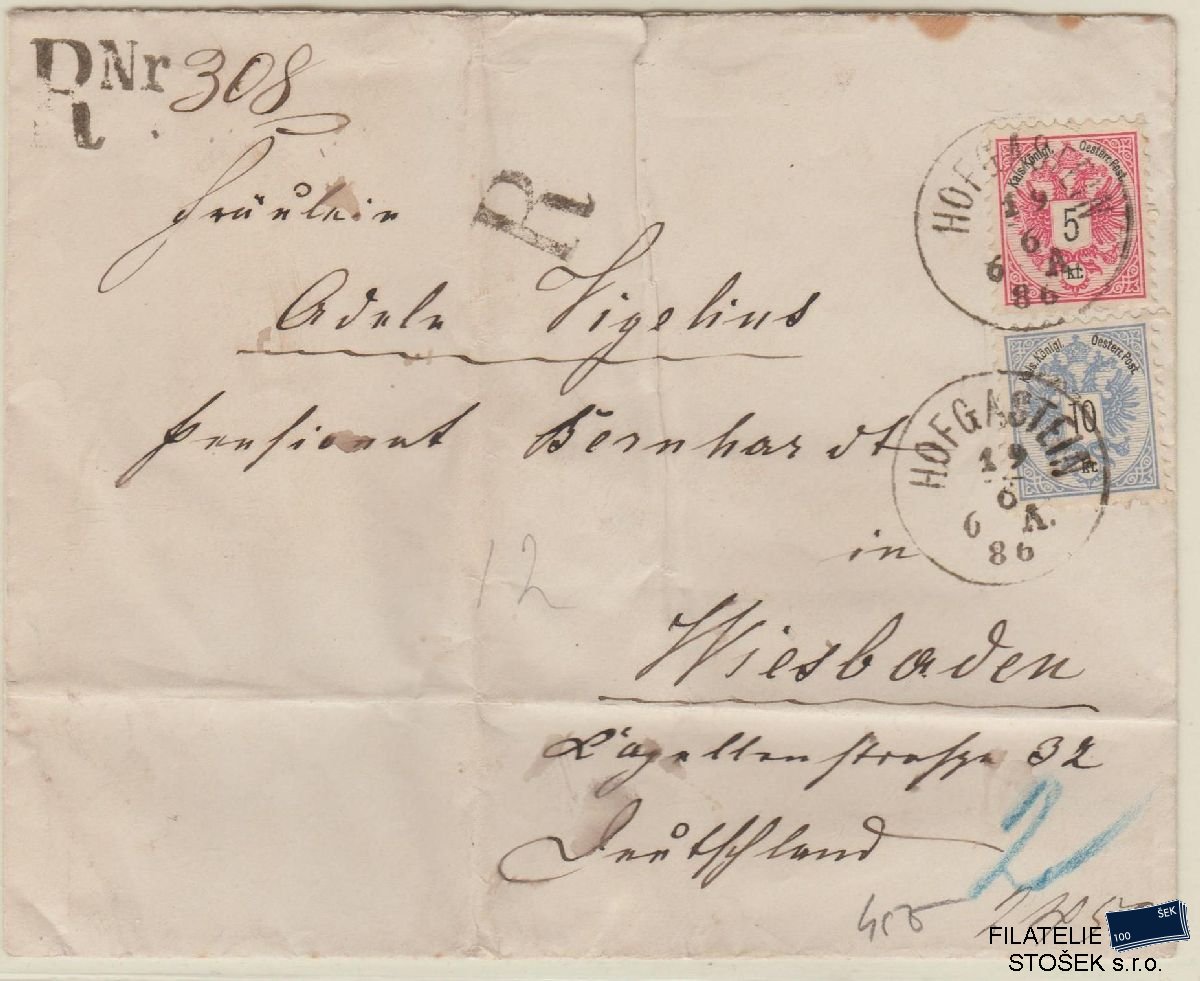 R Nr 308
R
Fräulein
Adele Vigelius
Pensionat Bernhardt
in
Wiesbaden
Kapellenstraße 32
Deutschland
12
2
Kais. Königl. Oesterr. Post.
5
kr.
HOFGASTEIN
19
6
6 A.
86
Kais. Königl. Oesterr. Post.
10
kr.
HOFGASTEIN
19
6
6 A.
86
100 ŠEK
FILATELIE
STOŠEK s.r.o.